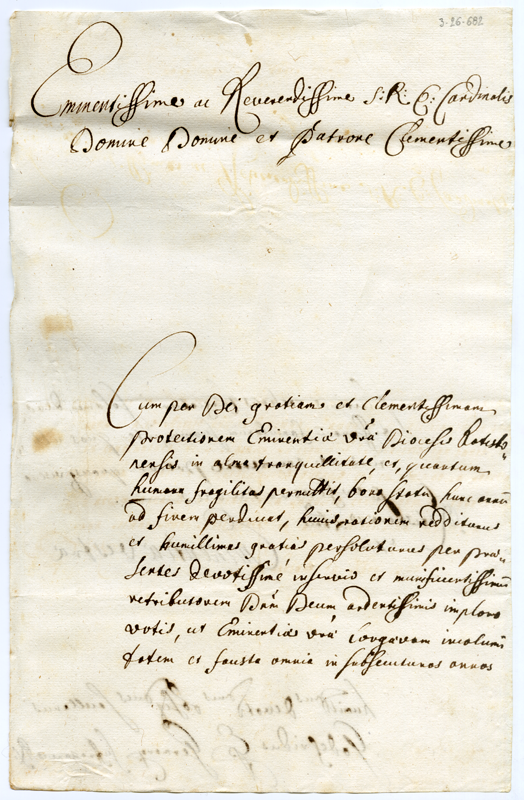 3-26-682
Eminentissime ac Reverendissime S: R: E: Cardinalis
Domine Domine et Patrone Clementissime
Cum per Dei gratiam et Clementissimam
protectionem Eminentiæ vrae Diocesis Ratisbo„
nensis in alma tranquillitate, et, quantum
humana fragilitas permittit, bono statu hunc annum
ad finem perducat, huius rationem redditurus
et humillimas gratias persoluturus per præ„
sentes devotissimé inservio et munificentissimum
retributorem Dnm Deum ardentissimis imploro
votis, ut Eminentiæ vræ longævam incolumi
tatem et fausta omnia in subsecuturos annos